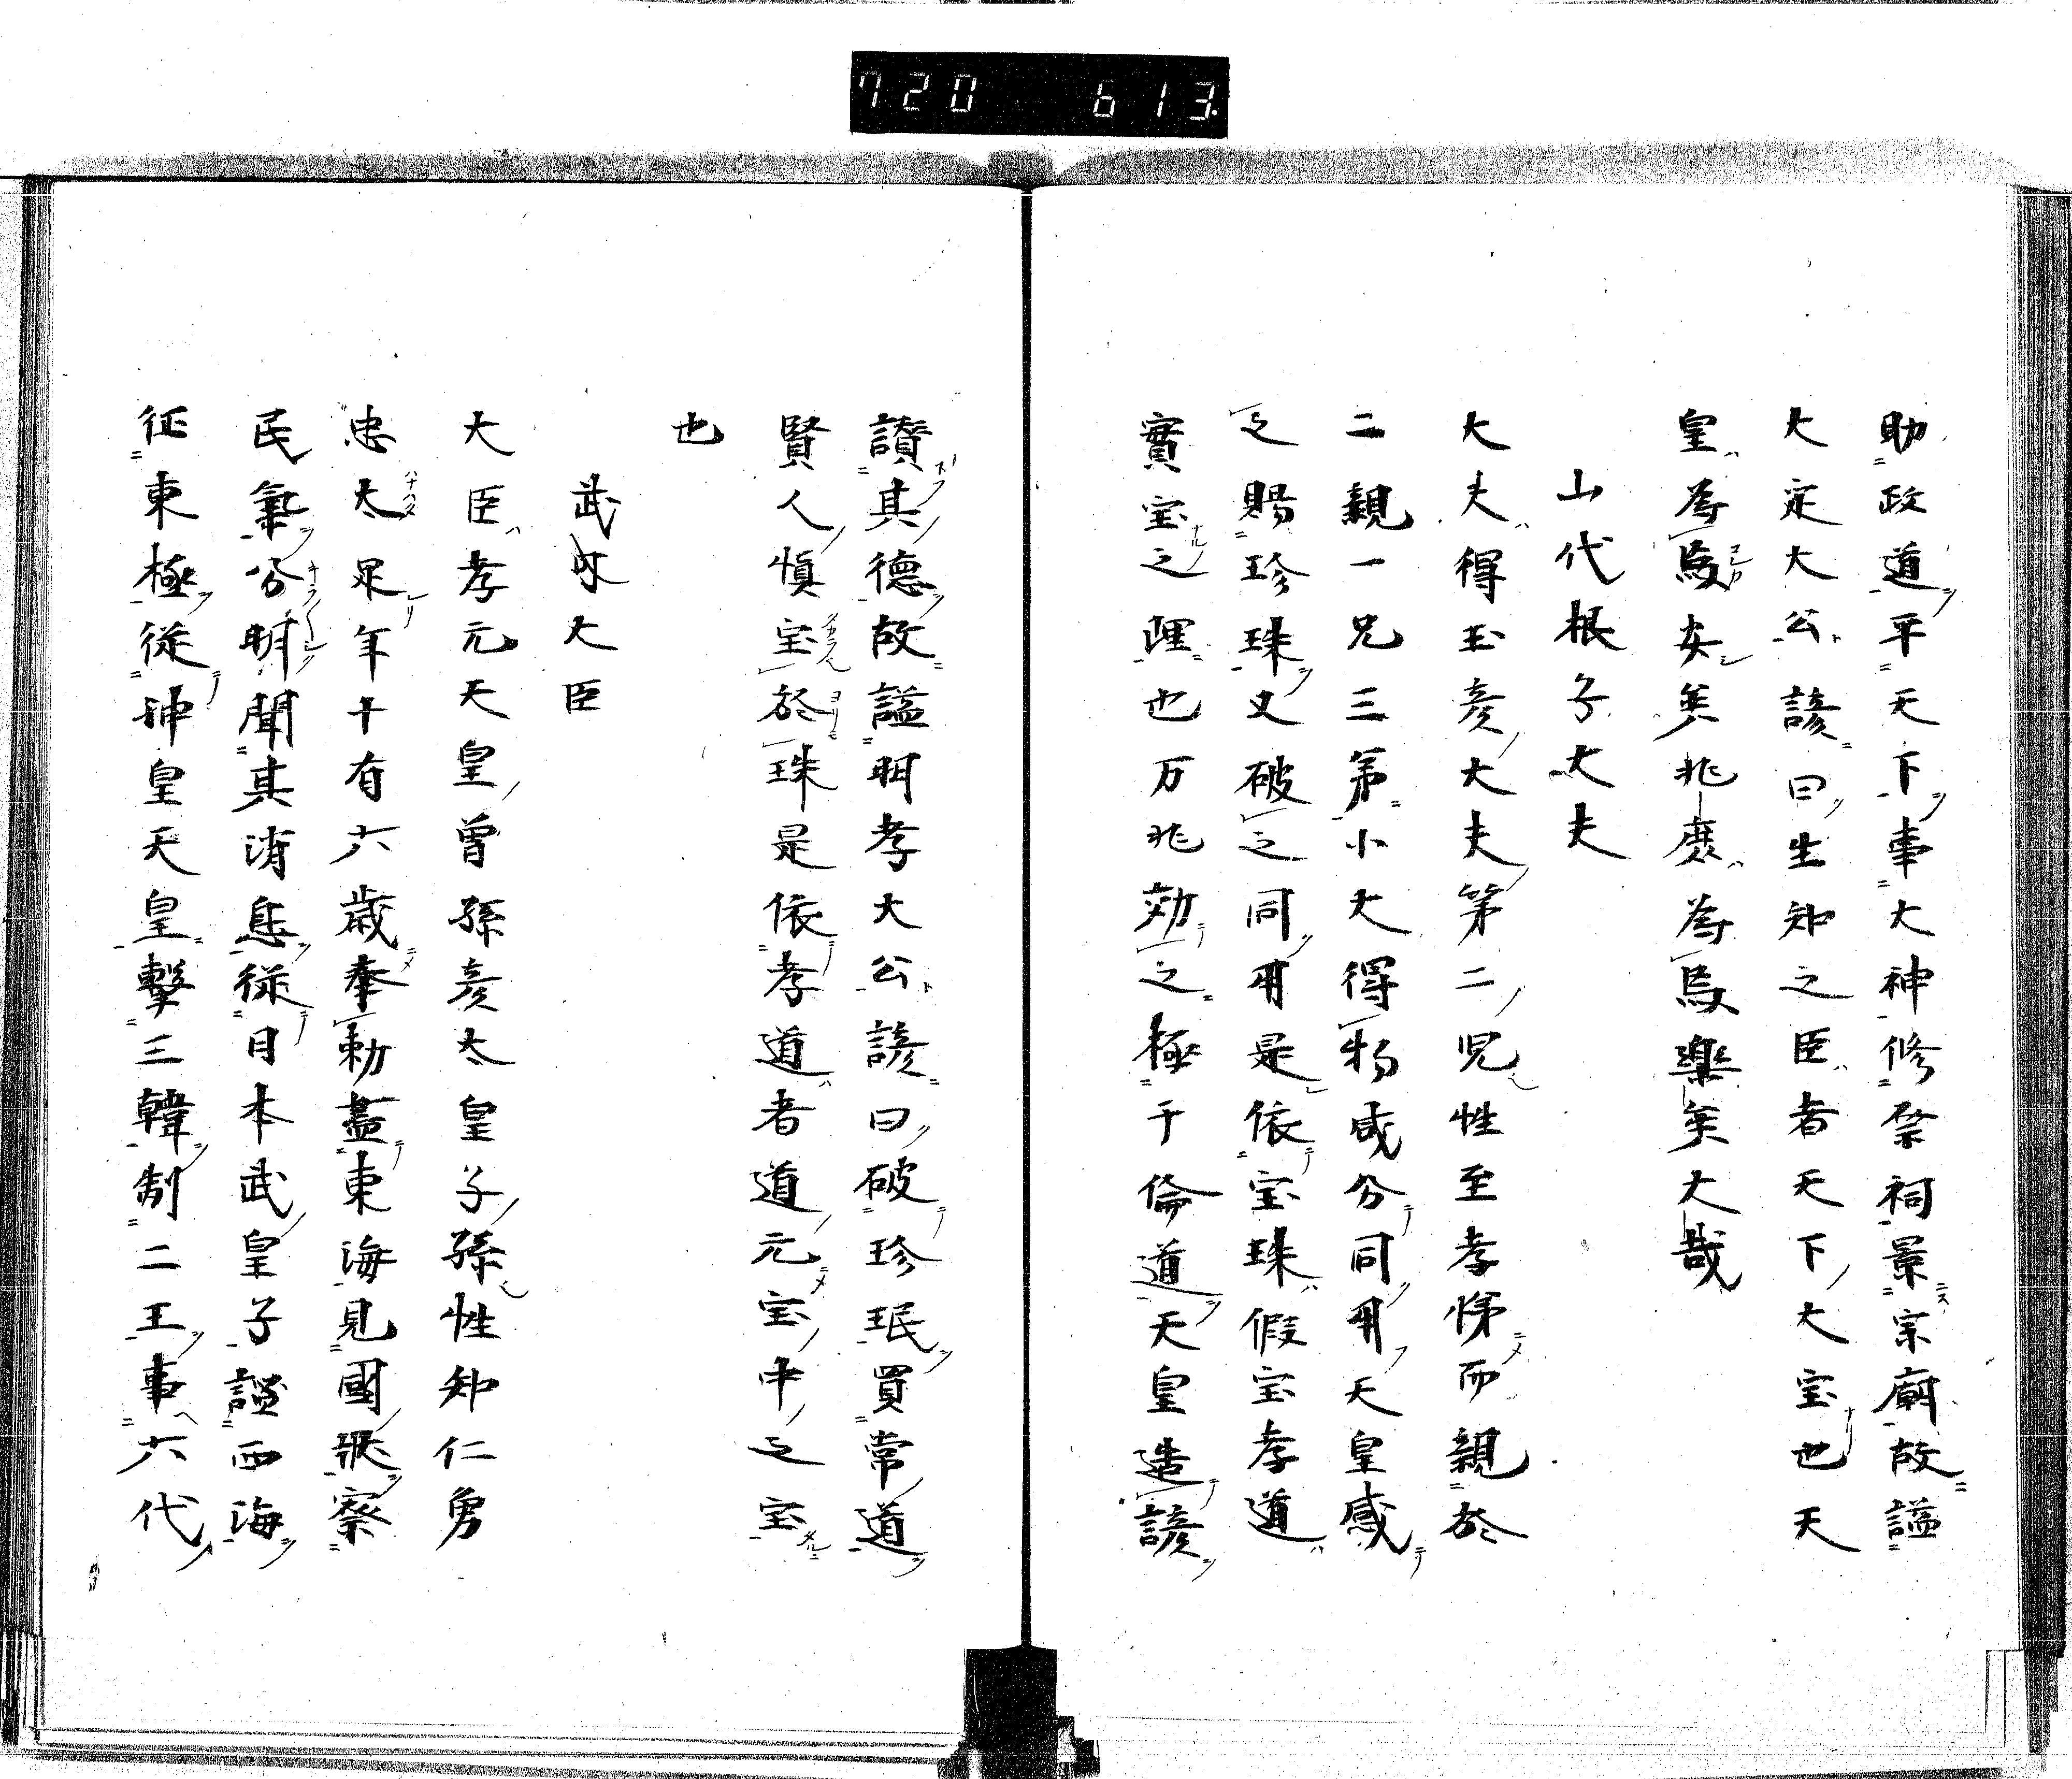 720 613
助政道平天下事大神修祭祠景宗廟故謚
大定大公諺曰生知之臣者天下大宝也天
皇為焉安矣兆庶為焉樂矣大哉
山代根子大夫
大夫得玉彦大夫第二児性至孝悌而親於
二親一兄三第小大得物咸分同用天皇感
之賜珍珠又破之同用是依宝珠假宝孝道
實宝之理也万兆効之極于倫道天皇造諺
讃其德故謚明孝大公諺曰破珍珉買常道
賢人慎宝於珠是依孝道者道元宝中之宝
也
武内大臣
大臣孝元天皇曾孫彦太皇子孫性知仁勇
忠太足年十有六歳奉勅盡東海見國狀察
民氣分明聞其消息従日本武皇子謚西海
征東極從神皇天皇擊三韓制二王事六代